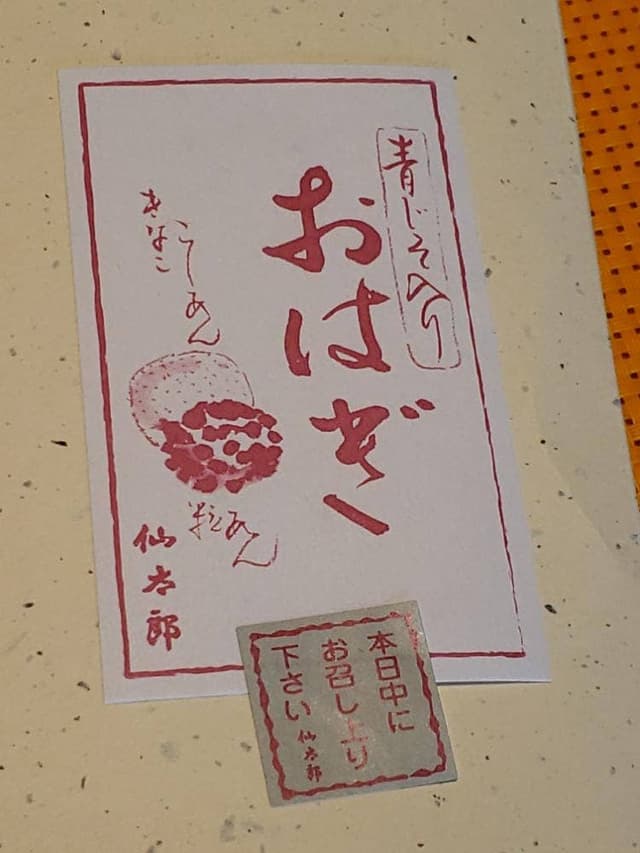 青じそ入り
おはぎ
きなこ
こしあん
粒あん
仙太郎
本日中に
お召し上り
下さい 仙太郎